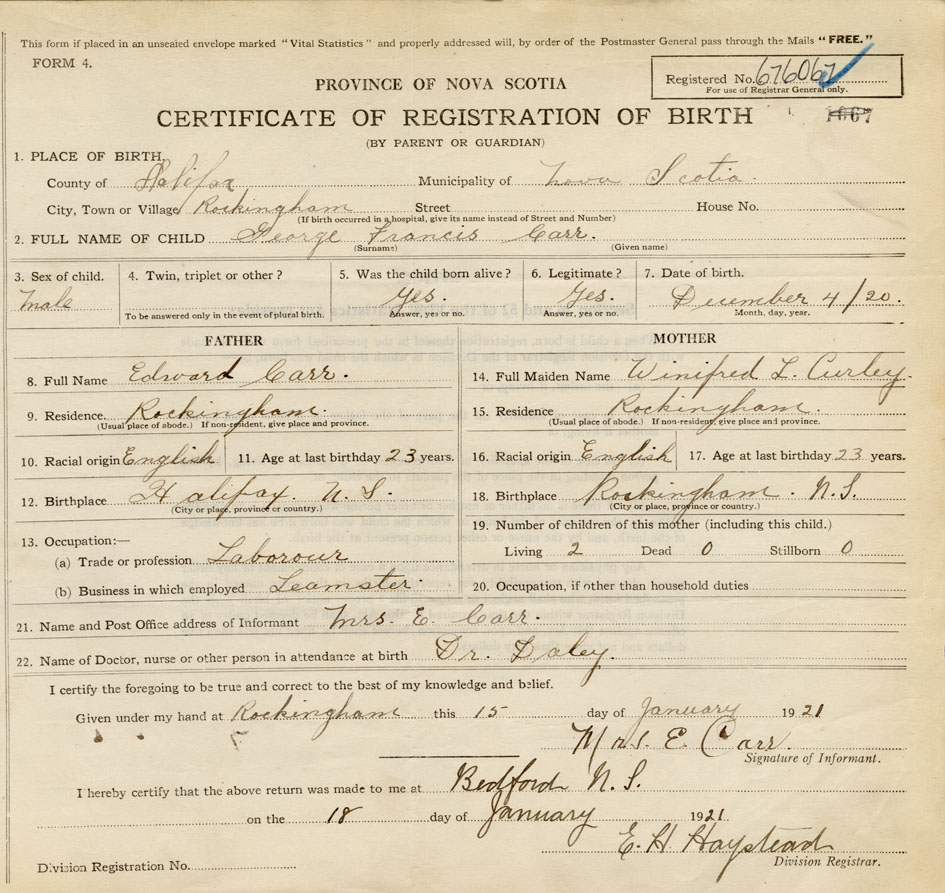 This form if placed in an unsealed envelope marked "Vital Statistics" and properly addressed will, by order of the Postmaster General pass through the Mails "FREE."
FORM 4.
Registered No. 676067
For use of Registrar General only.
PROVINCE OF NOVA SCOTIA
CERTIFICATE OF REGISTRATION OF BIRTH
(BY PARENT OR GUARDIAN)
1. PLACE OF BIRTH,
County of Halifax Municipality of Nova Scotia.
City, Town or Village Rockingham Street House No.
(If birth occurred in a hospital, give its name instead of Street and Number)
2. FULL NAME OF CHILD George Francis Carr.
(Surname) (Given name)
3. Sex of child. 4. Twin, triplet or other? 5. Was the child born alive? 6. Legitimate? 7. Date of birth.
Male Yes. Yes. December 4/20.
To be answered only in the event of plural birth. Answer, yes or no. Answer, yes or no. Month, day, year.
FATHER MOTHER
8. Full Name Edward Carr. 14. Full Maiden Name Winifred L. Curley.
9. Residence. Rockingham. 15. Residence Rockingham.
(Usual place of abode.) If non-resident, give place and province. (Usual place of abode.) If non-resident, give place and province.
10. Racial origin English 11. Age at last birthday 23 years. 16. Racial origin English 17. Age at last birthday 23 years.
12. Birthplace Halifax. N.S. 18. Birthplace Rockingham. N.S.
(City or place, province or country.) (City or place, province or country.)
13. Occupation:— 19. Number of children of this mother (including this child.)
(a) Trade or profession Laborour Living 2 Dead 0 Stillborn 0
(b) Business in which employed Teamster. 20. Occupation, if other than household duties
21. Name and Post Office address of Informant Mrs. E. Carr.
22. Name of Doctor, nurse or other person in attendance at birth Dr. Daley.
I certify the foregoing to be true and correct to the best of my knowledge and belief.
Given under my hand at Rockingham this 15 day of January 1921
Mrs. E. Carr.
Signature of Informant.
I hereby certify that the above return was made to me at Bedford N.S.
on the 18 day of January 1921.
E. H. Haystead
Division Registration No. Division Registrar.